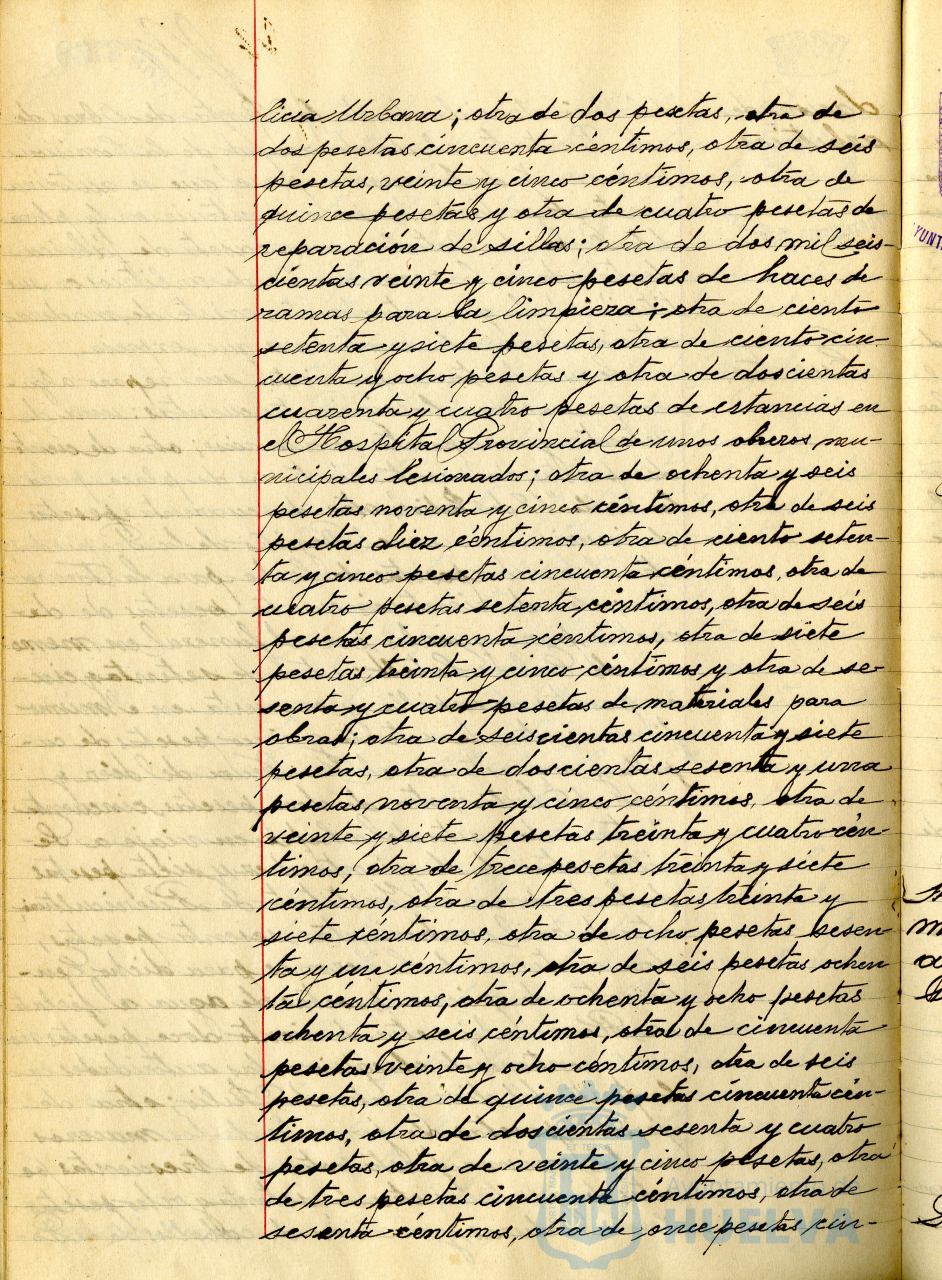 licia Urbana; otra de dos pesetas, otra de
dos pesetas cincuenta céntimos, otra de seis
pesetas, veinte y cinco céntimos, otra de
quince pesetas y otra de cuatro pesetas de
reparación de sillas; otra de dos mil seis-
cientas veinte y cinco pesetas de haces de
ramas para la limpieza; otra de ciento
setenta y siete pesetas, otra de ciento cin-
cuenta y ocho pesetas y otra de doscientas
cuarenta y cuatro pesetas de estancias en
el Hospital Provincial de unos obreros mu-
nicipales lesionados; otra de ochenta y seis
pesetas noventa y cinco céntimos, otra de seis
pesetas diez céntimos, otra de ciento seten-
ta y cinco pesetas cincuenta céntimos, otra de
cuatro pesetas setenta céntimos, otra de seis
pesetas cincuenta céntimos, otra de siete
pesetas treinta y cinco céntimos y otra de se-
senta y cuatro pesetas de materiales para
obras; otra de seiscientas cincuenta y siete
pesetas, otra de doscientas sesenta y una
pesetas noventa y cinco céntimos, otra de
veinte y siete pesetas treinta y cuatro cén-
timos, otra de trece pesetas treinta y siete
céntimos, otra de tres pesetas treinta y
siete céntimos, otra de ocho pesetas sesen-
ta y un céntimos, otra de seis pesetas ochen-
ta céntimos, otra de ochenta y ocho pesetas
ochenta y seis céntimos, otra de cincuenta
pesetas veinte y ocho céntimos, otra de seis
pesetas, otra de quince pesetas cincuenta cén-
timos, otra de doscientas sesenta y cuatro
pesetas, otra de veinte y cinco pesetas, otra
de tres pesetas cincuenta céntimos, otra de
sesenta céntimos, otra de once pesetas cin-
Ayuntamiento
HUELVA